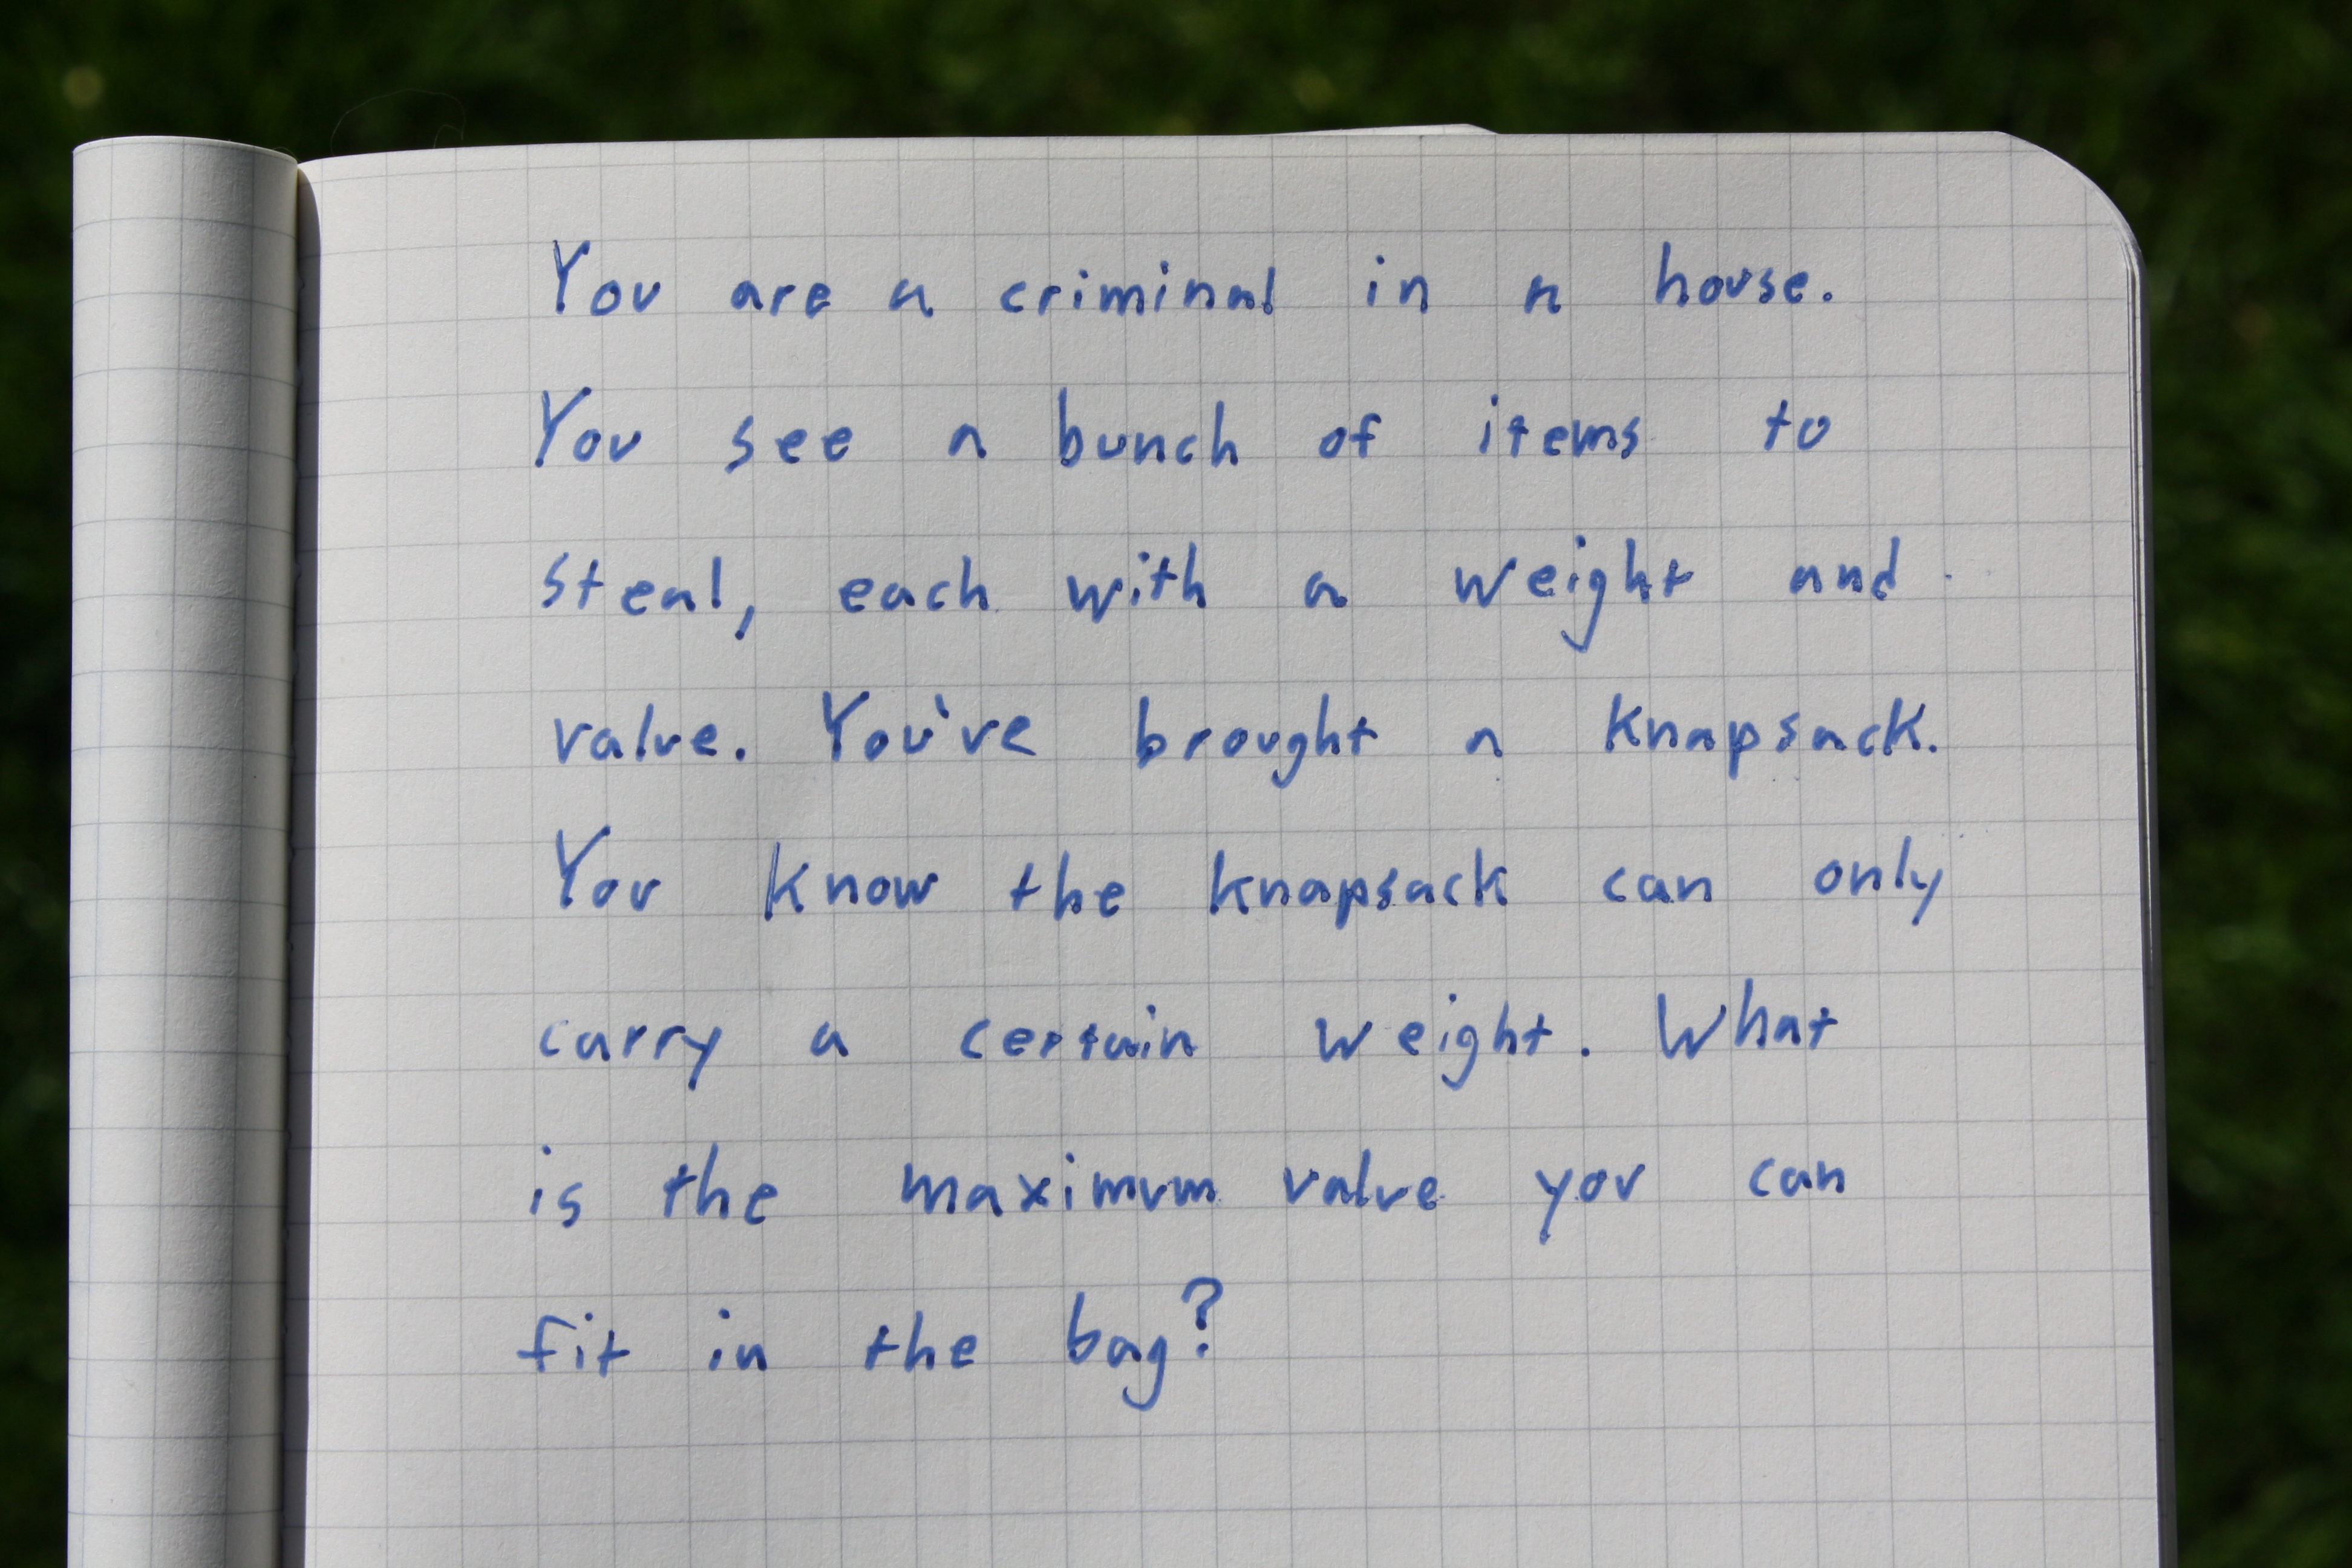 You are a criminal in a house.
You see a bunch of items to
steal, each with a weight and
value. You've brought a knapsack.
You know the knapsack can only
carry a certain weight. What
is the maximum value you can
fit in the bag?